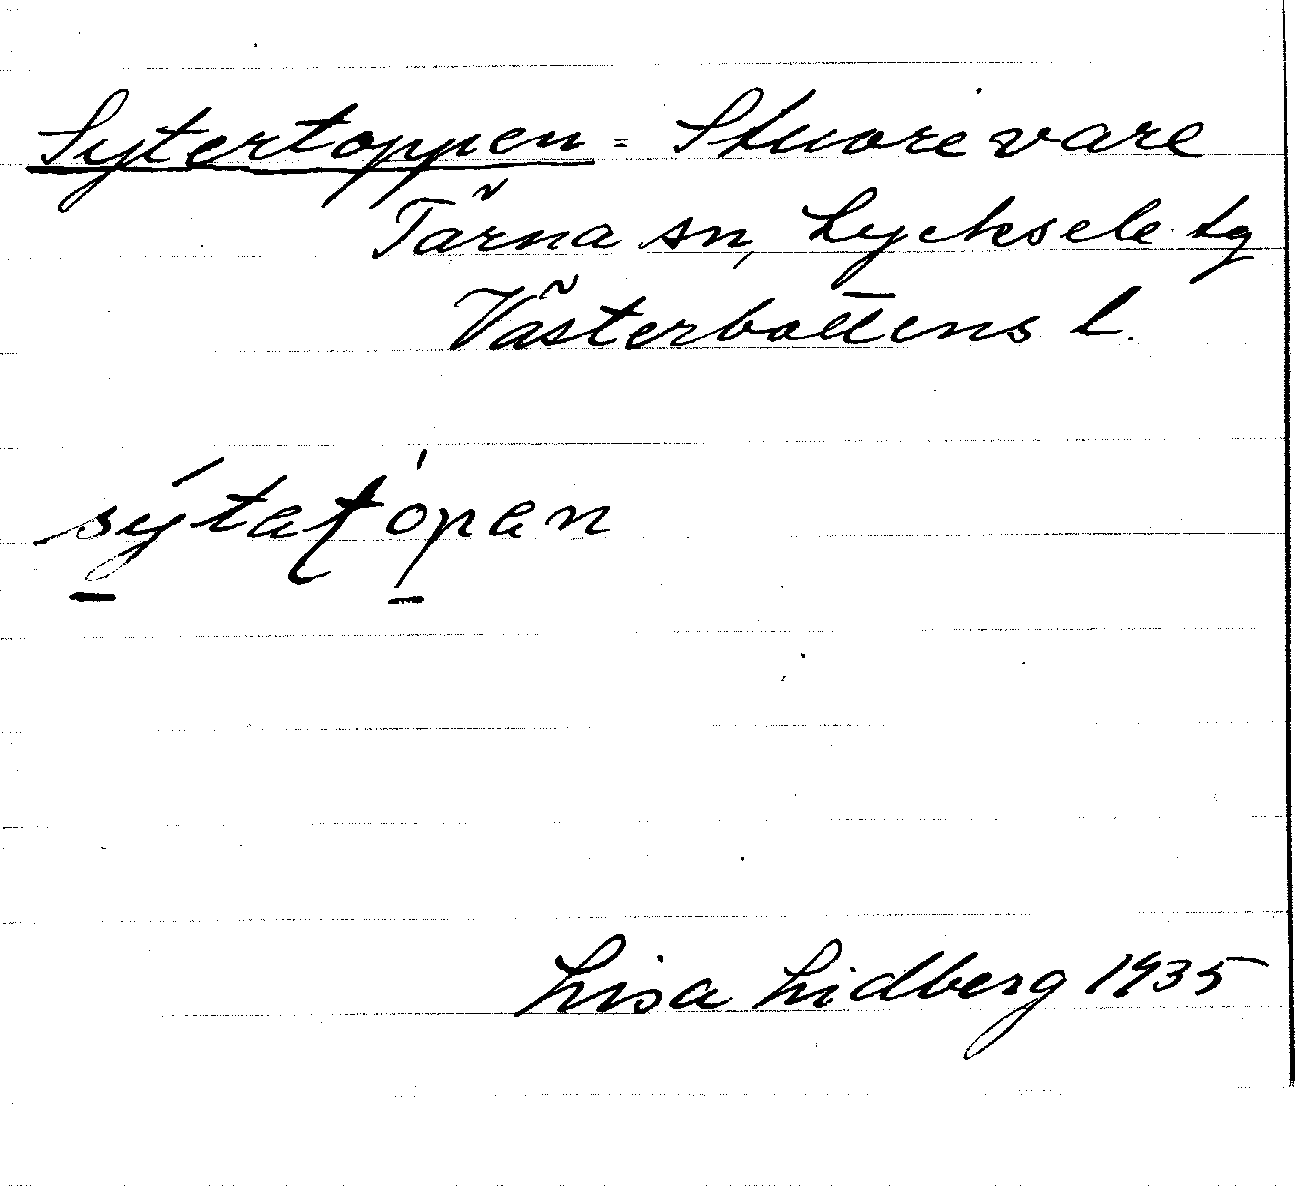 Sytertoppen = Stuorevare
Tärna sn, Lycksele lg
Västerbottens l.
sýtaťópan
Lisa Lidberg 1935